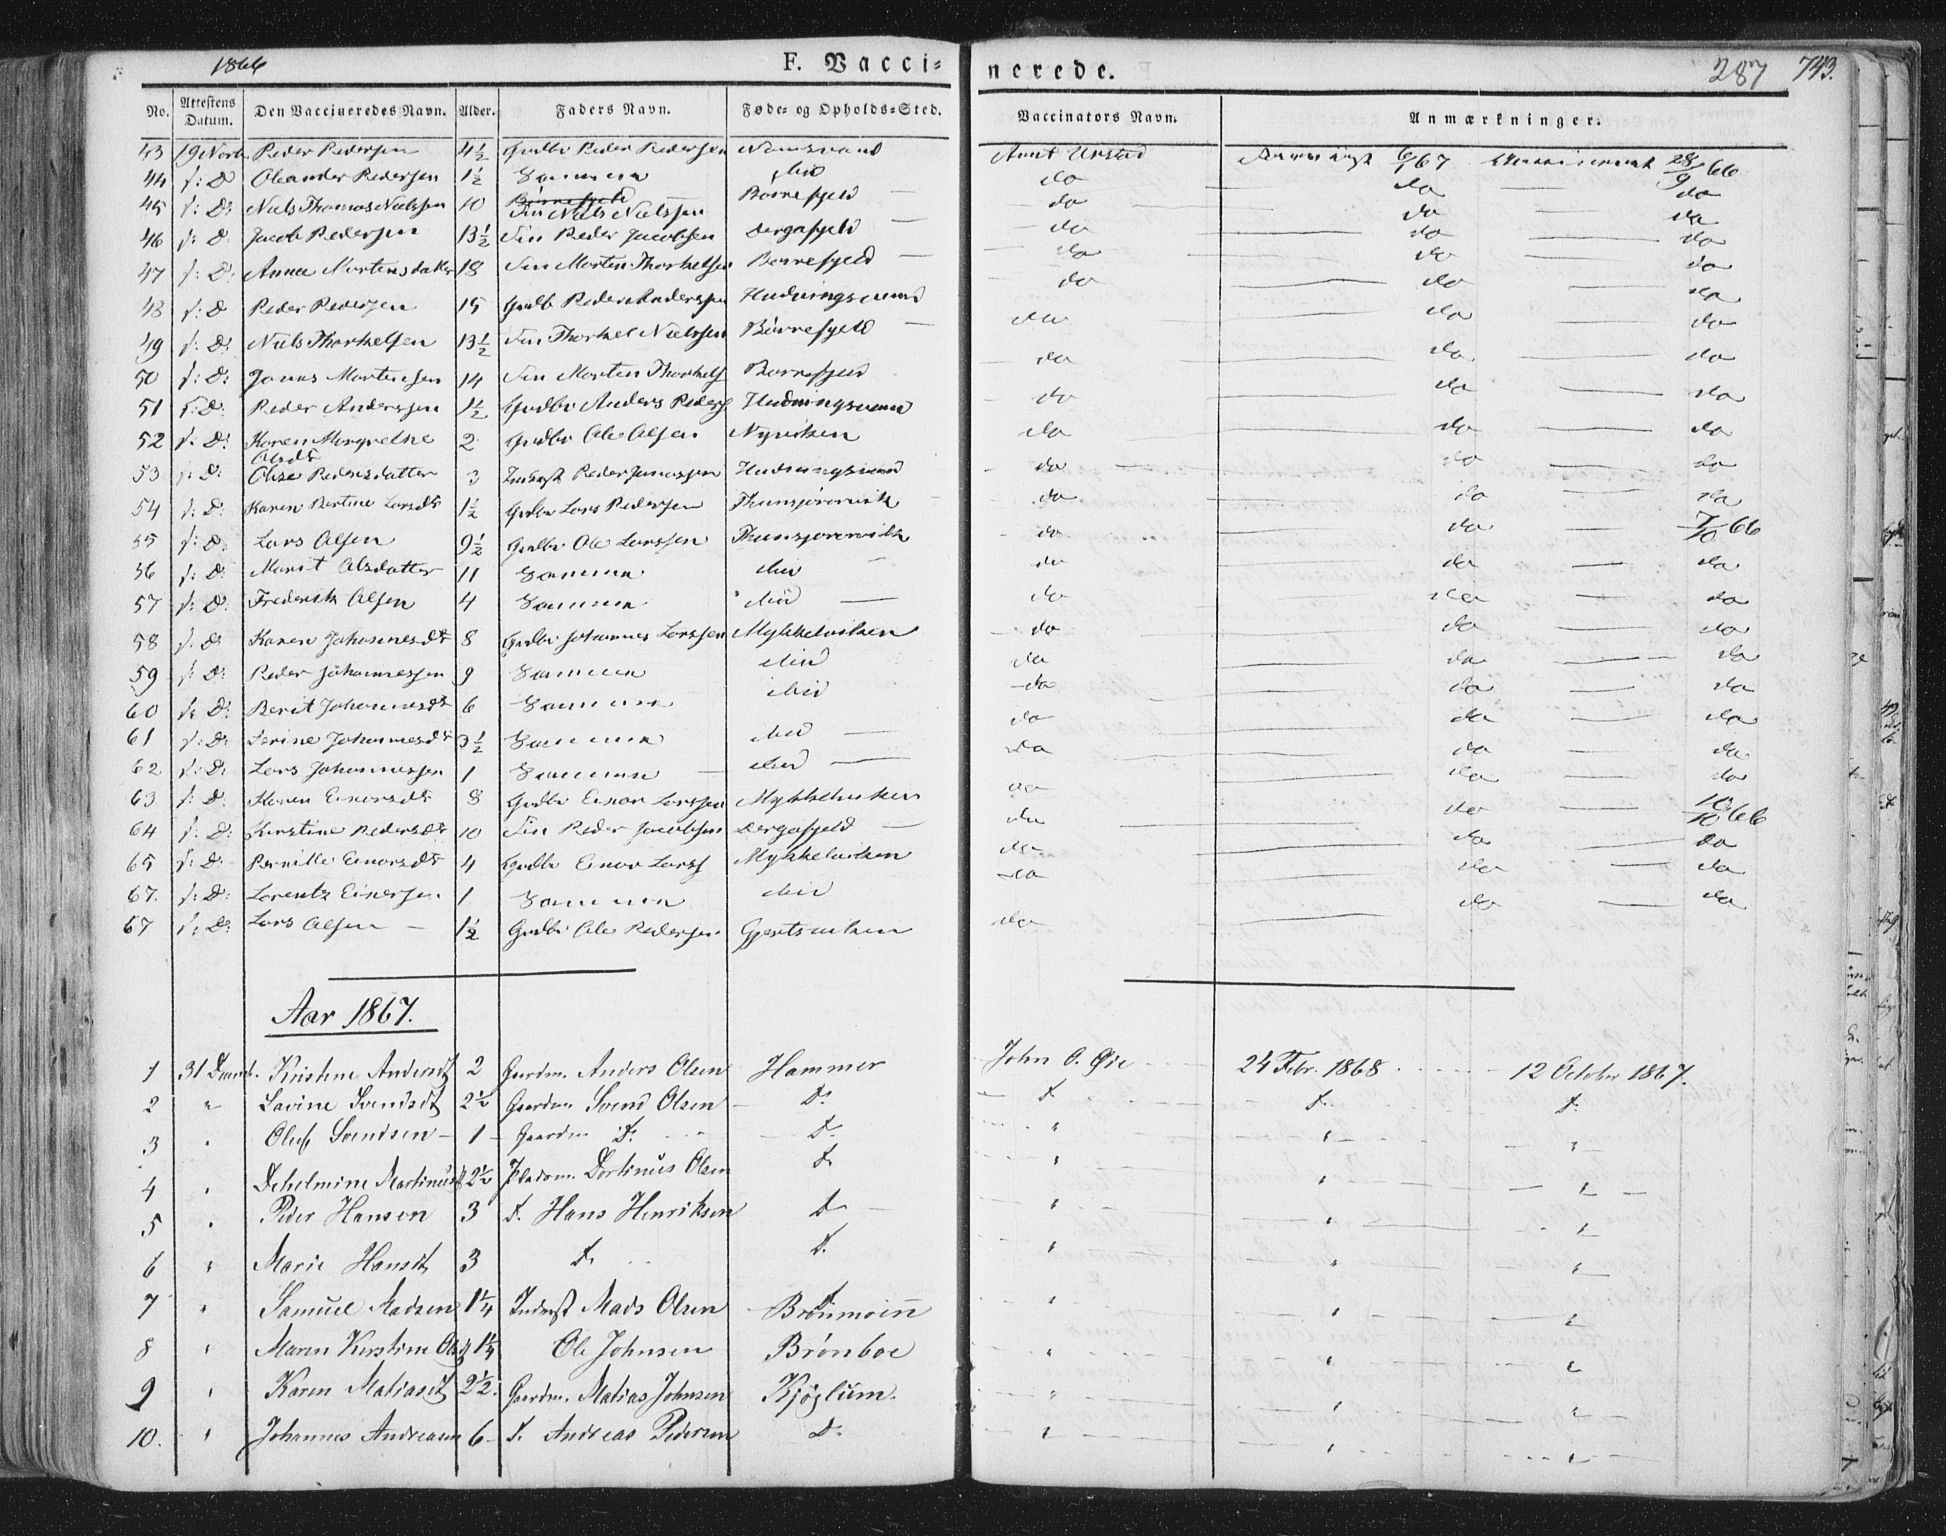 1866 F. Vacci= nerede. 287 743.
No. Attestens Datum. Den Vaccineredes Navn. Alder. Faders Navn. Føde= og Opholds=Sted. Vaccinators Navn. Anmærkninger.
43 19 Novb Peder Pedersen 4½ Gaardbr Peder Pedersen Namsvand 6/1 67 28/9 66
44 s: D Oleander Pedersen 1½ Samme ibid do do do
45 s: D: Niels Thomas Nielsen 10 Fin Niels Nielsen Børrefjeld do do do
46 s: D Jacob Pedersen 13½ Fin Peder Jacobsen Dergafjeld do do do
47 s: D: Anne Mortensdatter 18 Fin Morten Thorkelsen Børrefjeld do do do
48 s: D Peder Pedersen 15 Gaardb Peder Andersen Hudningsvand do do do
49 s: D: Niels Thorkelsen 13½ Fin Thorkel Nielsen Børrefjeld do do do
50 s: D: Jonas Mortensen 14 Fin Morten Thorkels Børrefjeld do do do
51 s: D: Peder Andersen 1½ Gaardbr Anders Peders Hudningsvand do do do
52 s: D: Karen Margrethe Olsdt 2 Gaardbr Ole Olsen Nyviken do do do
53 s: D: Oline Pedersdatter 3 Inderst Peder Jonassen Hudningsvand do do do
54 s: D: Karen Bertine Larsdt 1½ Gaardbr Lars Pedersen Thunsjørorvik do do do
55 s: D: Lars Olsen 9½ Gaardbr Ole Larssen Thunsjørorvik do do 7/10 66
56 s: D: Marit Olsdatter 11 Samme ibid do do do
57 s: D: Frederik Olsen 4 Samme ibid do do do
58 s: D Karen Johannesdt 8 Gaardbr Johannes Larssen Mykkelviken do do do
59 s: D: Peder Johannessen 9 Samme ibid do do do
60 s: D: Berit Johannesdt 6 Samme ibid do do do
61 s: D: Serine Johannesdt 3½ Samme ibid do do do
62 s: D: Lars Johannessen 1 Samme ibid do do do
63 s: D: Karen Einarsdt 8 Gaardbr Einar Larssen Mykkelviken do do do
64 s: D: Kirstine Pedersdt 10 Fin Peder Jacobsen Dergafjeld do do 10/10 66
65 s: D: Pernille Einarsdt 4 Gaardbr Einar Larss Mykkelviken do do do
67. s: D: Lorentz Einarsen 1 Samme ibid do do do
67 s: D: Lars Olsen 1½ Gaardbr Ole Pedersen Gjertsviken do do do
Aar 1867.
1 31 Decemb. Kristine Andersdt 2 Gaardm. Anders Olsen Hammer John O. Øie 24 Febr. 1868 12 October 1867.
2 " Lavine Svendsdt 2½ Gaardm. Svend Olsen D: D. D. D:
3 " Oluf Svendsen 1 Gaardm D: D: " " "
4 " Dehelmine Martinusdt 2½ Pladsm. Dortinus Olsen D. " " "
5 " Peder Hansen 3 D. Hans Henriksen D. " " "
6 " Marie Hansdt 3 D. D. " " "
7 " Samuel Madsen 1¼ Inderst Mads Olsen Brønmoin " " "
8 " Maren Kirstine Olsdt 1¼ Ole Johnsen Brønboe " " "
9 " Karen Matiasdt 2½. Gaardm. Matias Johnsen Kjøglum. " " "
10. " Johannes Andreasen 6 D. Andreas Pedersen D: " " "